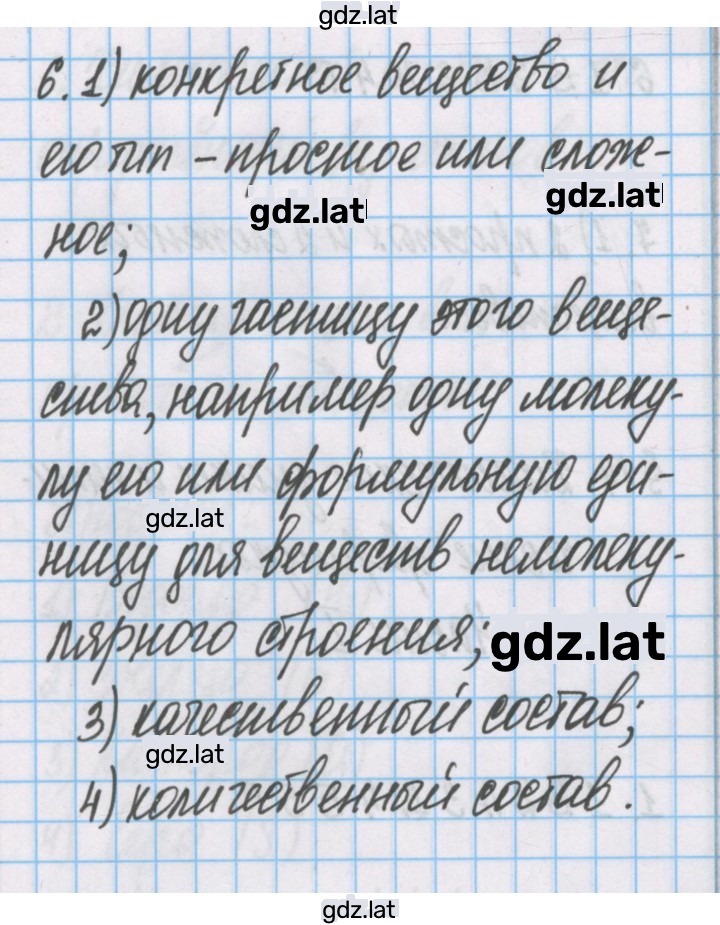 gdz.lat
6. 1) конкретное вещество и
его тип – простое или сложе-
gdz.lat
gdz.lat
ное;
2) одну частицу этого веще-
ства, например одну молеку-
лу его или формульную еди-
gdz.lat
ницу для веществ немолеку-
лярного строения;
gdz.lat
3) качественный состав;
gdz.lat
4) количественный состав.
gdz.lat